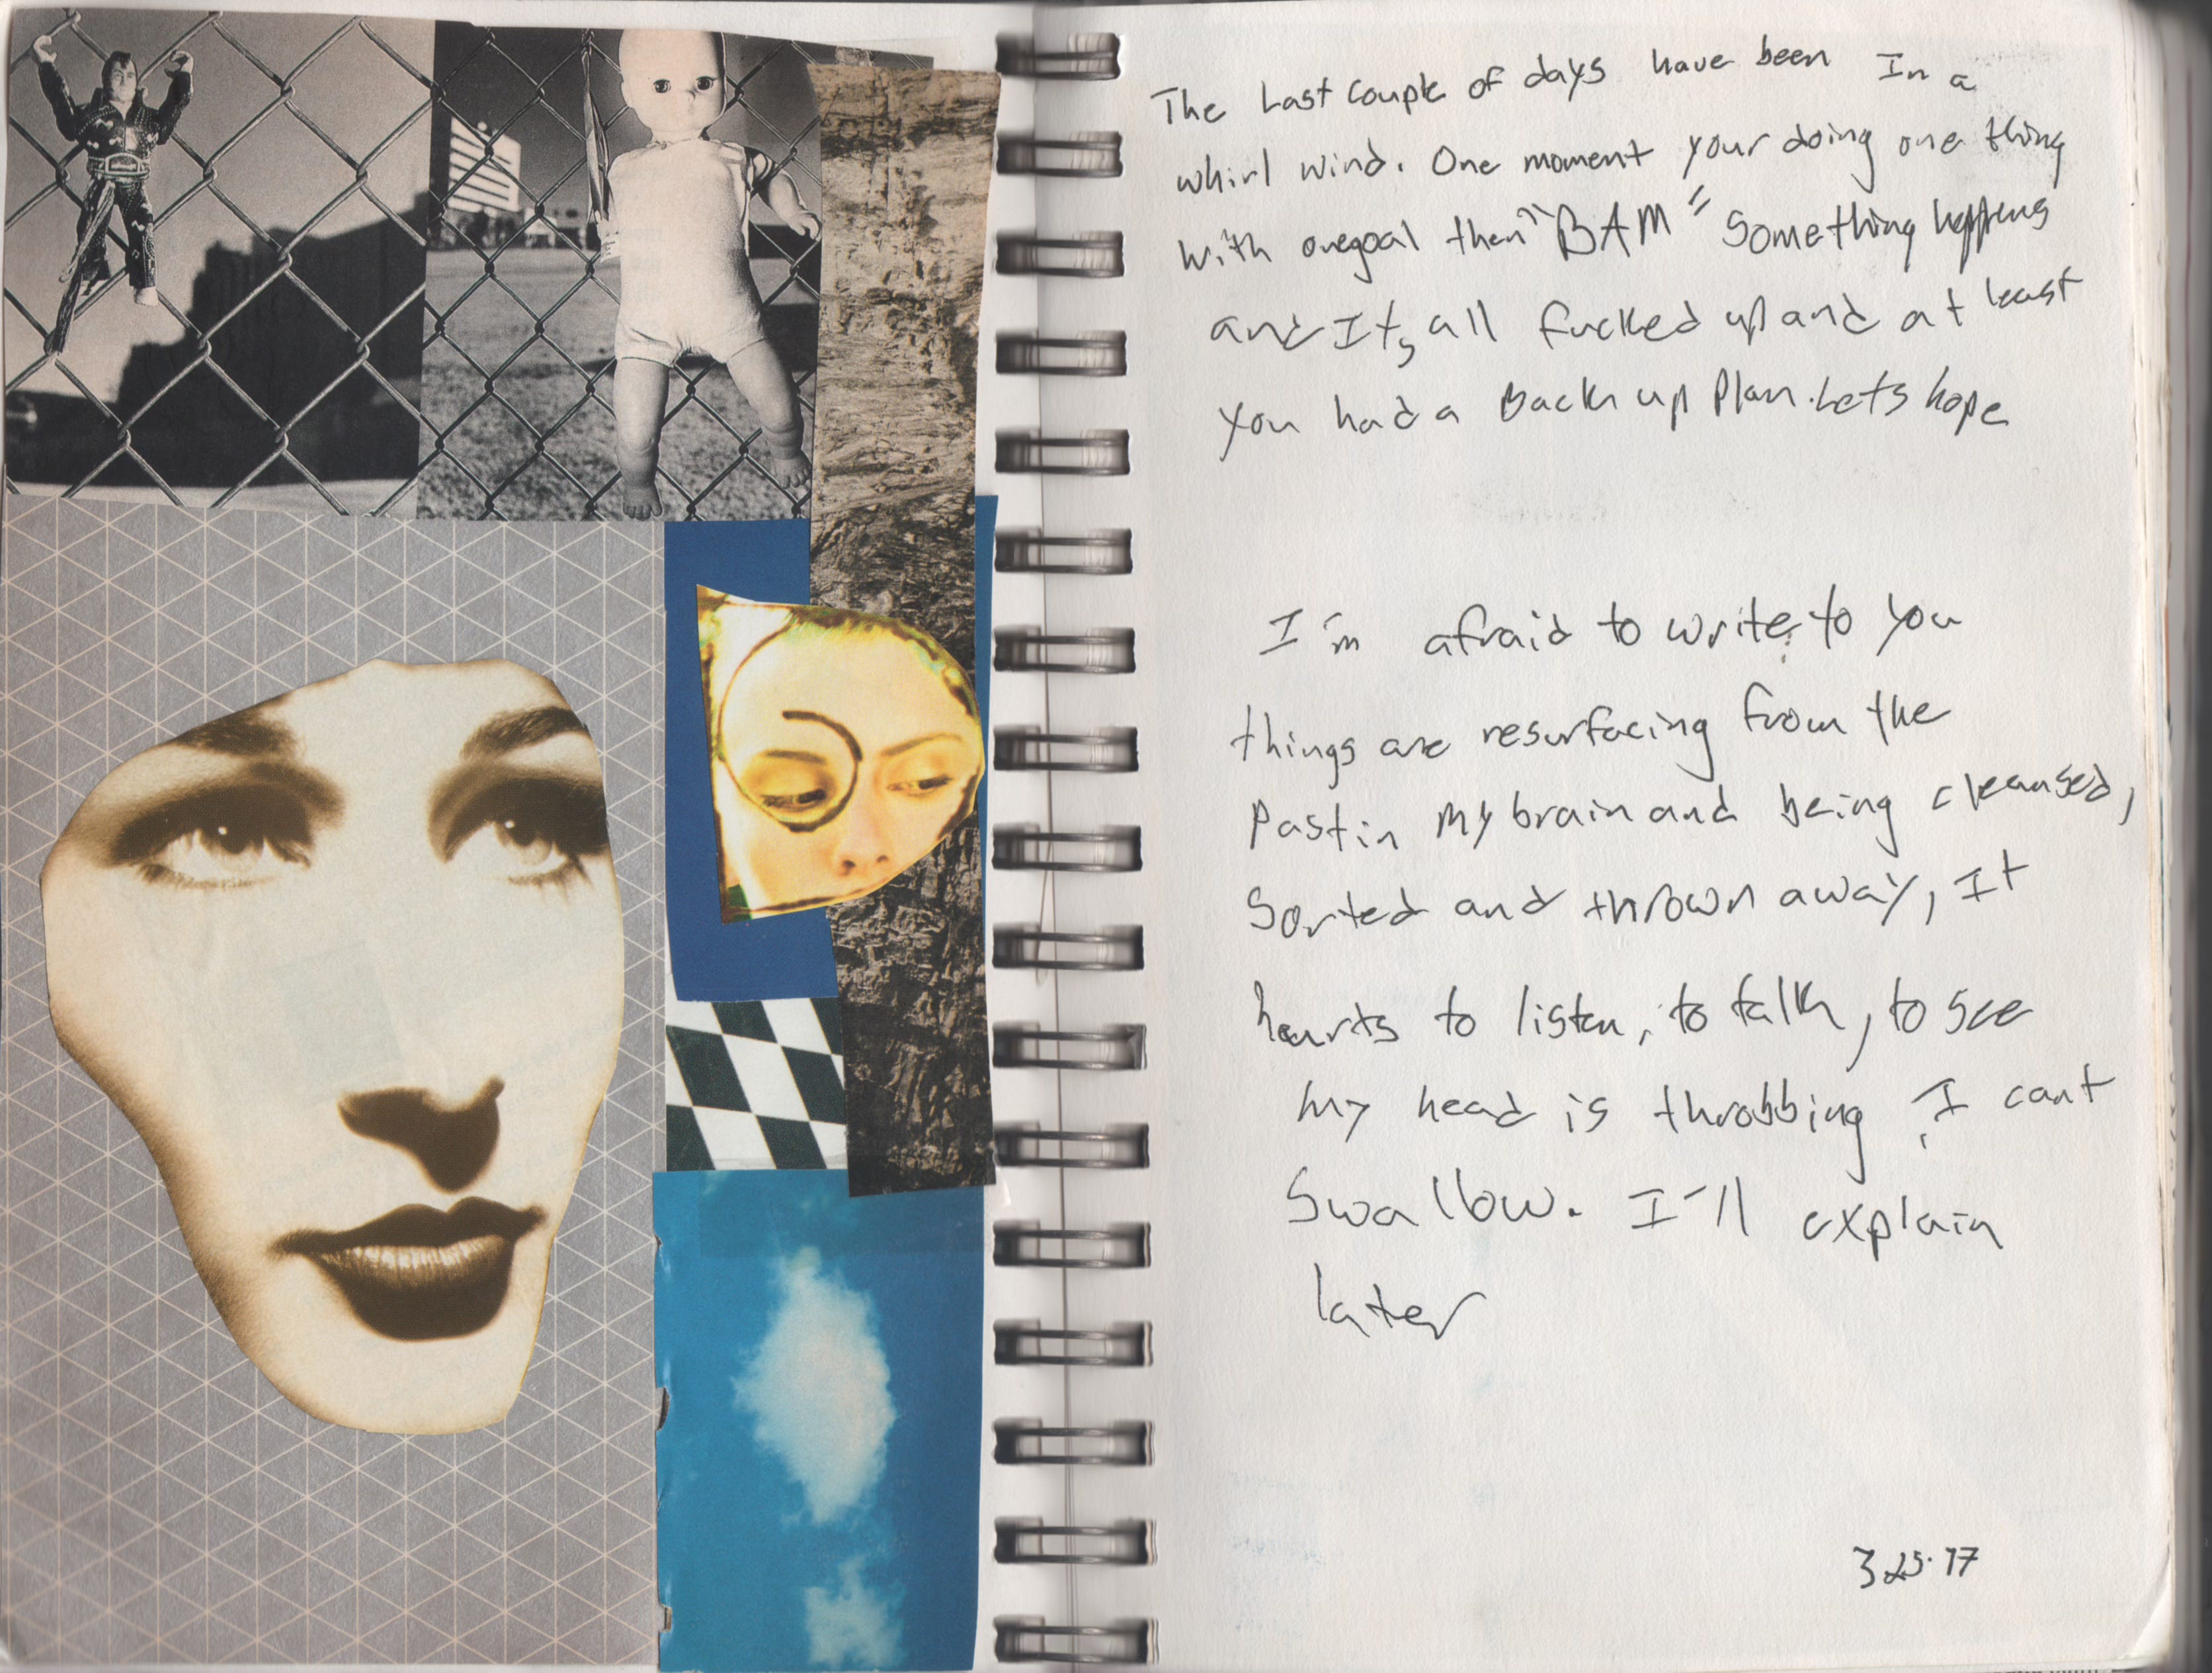 The Last couple of days have been In a
whirl wind. One moment your doing one thing
with onegoal then "BAM" Something happens
and It,s all fucked up and at least
you had a Back up Plan. Lets hope
I'm afraid to write to you
things are resurfacing from the
Past in my brain and being cleansed,
Sorted and thrown away, It
hurts to listen, to talk, to see
my head is throbbing, I cant
Swallow. I'll explain
later
3.25.17